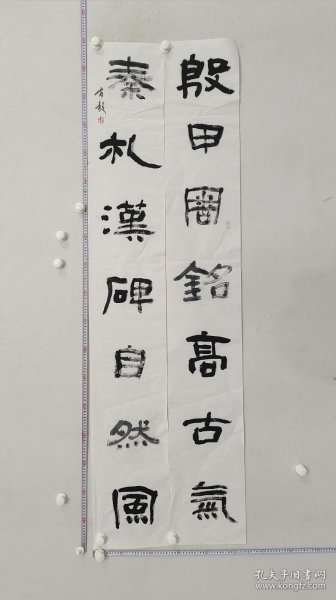 殷甲周銘高古氣
秦札漢碑自然風
孔夫子旧书网
www.kongfz.com